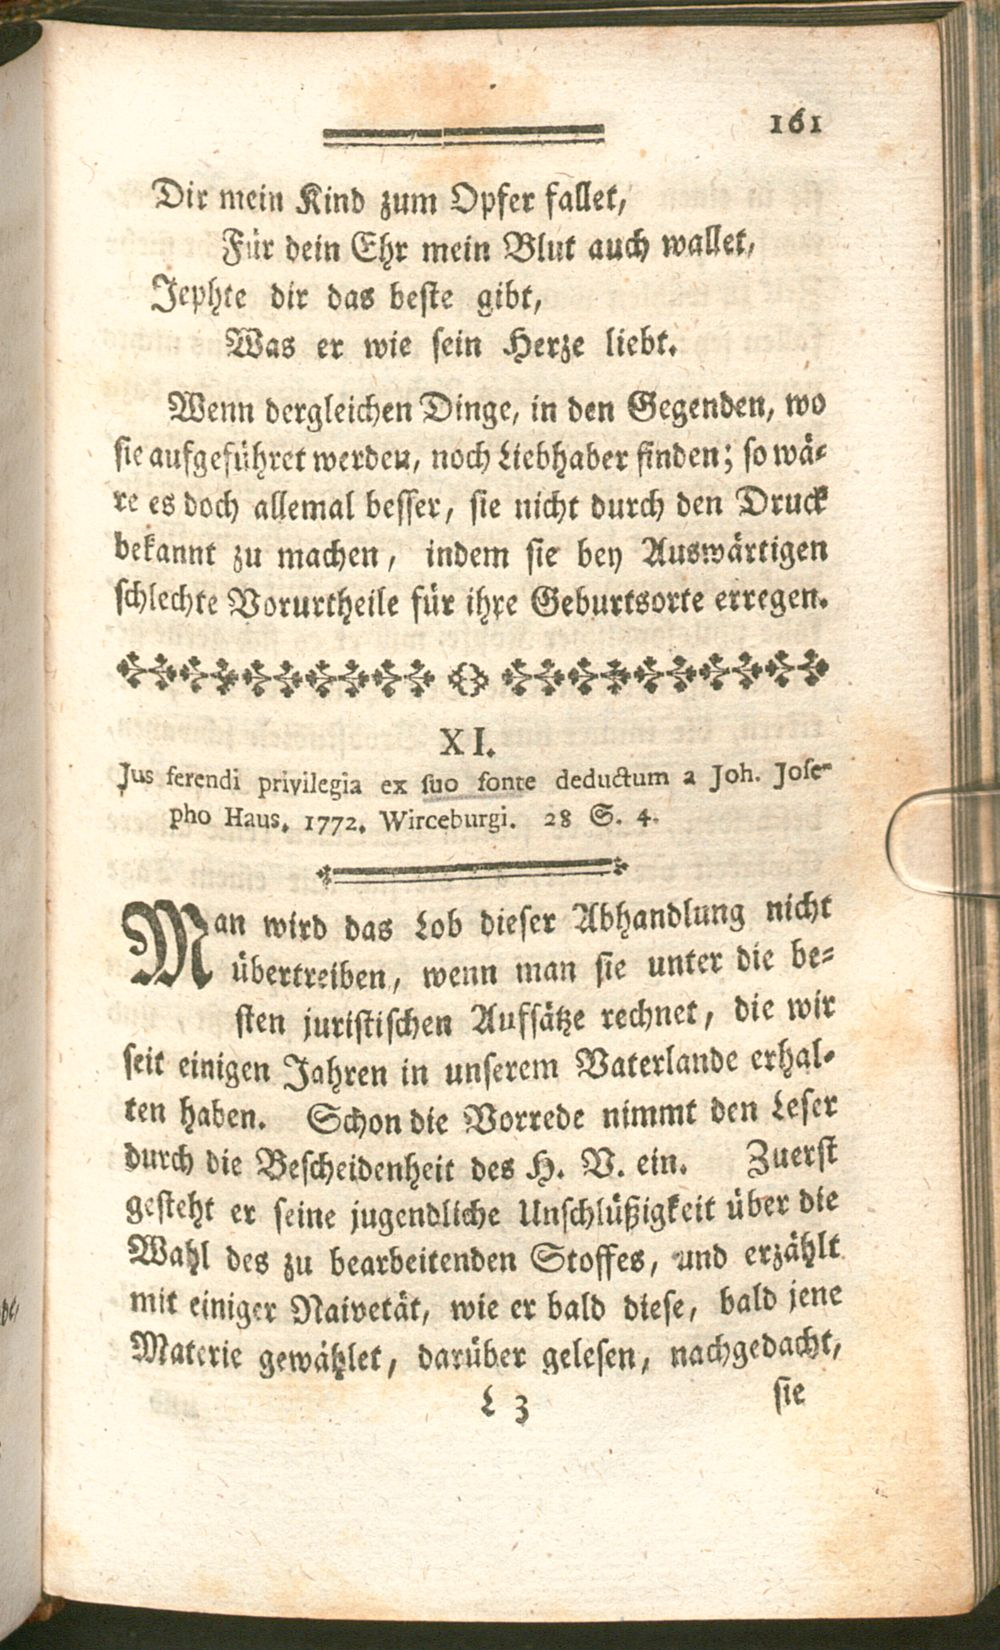 161
Dir mein Kind zum Opfer fallet,
Für dein Ehr mein Blut auch wallet,
Jephte dir das beste gibt,
Was er wie sein Herze liebt.
Wenn dergleichen Dinge, in den Gegenden, wo
sie aufgeführet werden, noch Liebhaber finden; so wä-
re es doch allemal besser, sie nicht durch den Druck
bekannt zu machen, indem sie bey Auswärtigen
schlechte Vorurtheile für ihre Geburtsorte erregen.
XI.
Jus ferendi privilegia ex suo fonte deductum a Joh. Jose-
pho Haus. 1772. Wirceburgi. 28 S. 4.
Man wird das Lob dieser Abhandlung nicht
übertreiben, wenn man sie unter die be-
sten juristischen Aufsätze rechnet, die wir
seit einigen Jahren in unserem Vaterlande erhal-
ten haben. Schon die Vorrede nimmt den Leser
durch die Bescheidenheit des H. V. ein. Zuerst
gesteht er seine jugendliche Unschlüßigkeit über die
Wahl des zu bearbeitenden Stoffes, und erzählt
mit einiger Naivetät, wie er bald diese, bald jene
Materie gewählet, darüber gelesen, nachgedacht,
L 3
sie